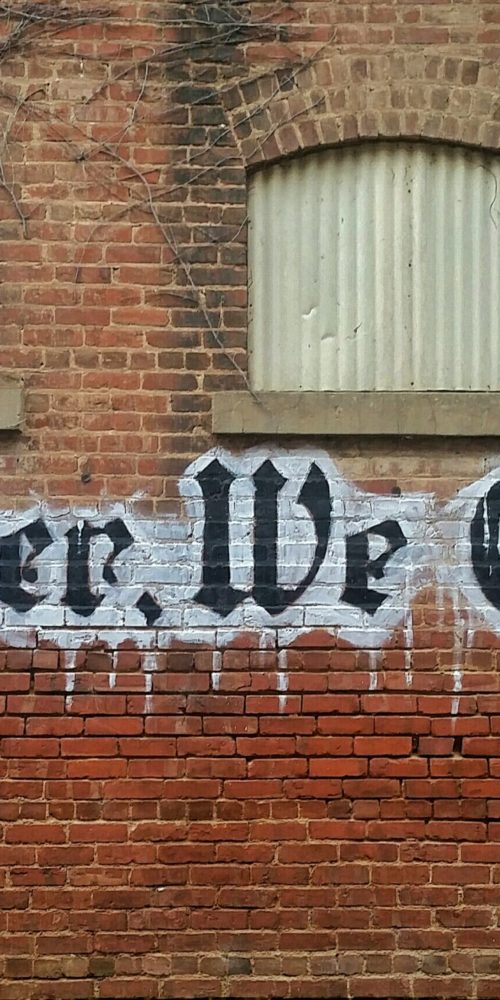 er, We